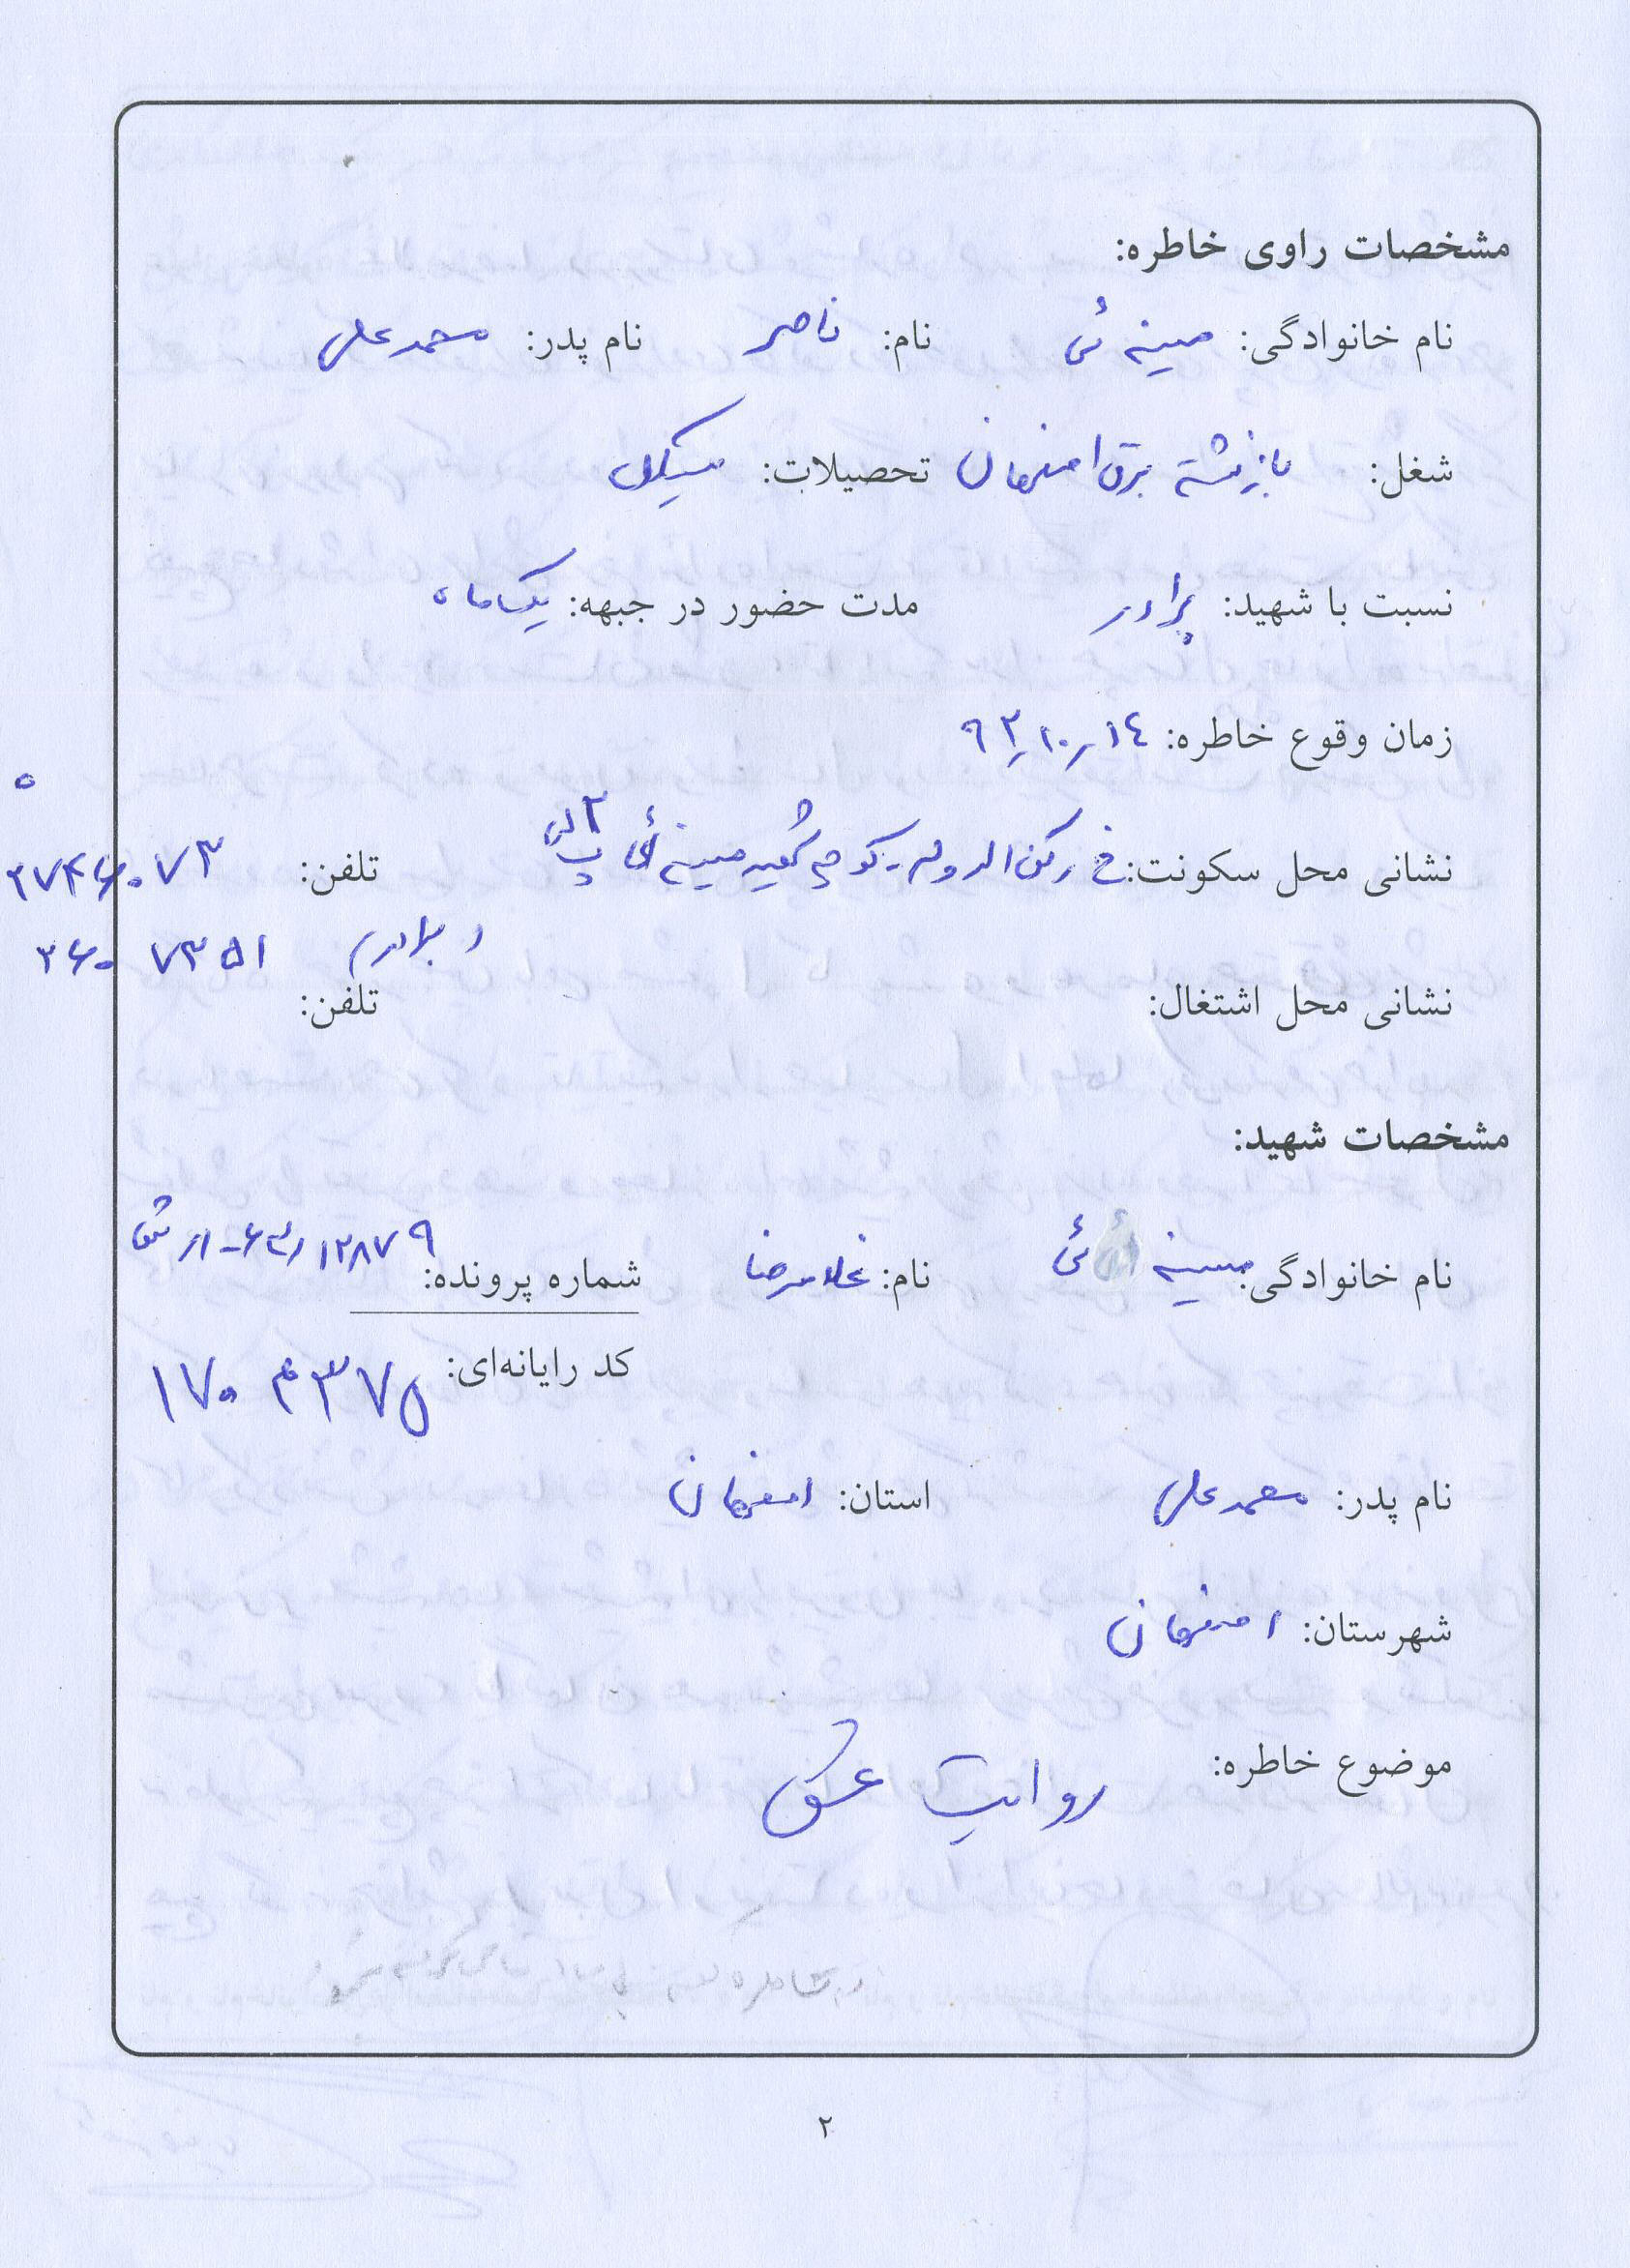 مشخصات راوی خاطره:
نام خانوادگی: مبینه ئی نام: ناصر نام پدر: محمدعلی
شغل: بازنشسته برق اصفهان تحصیلات: سیکل
نسبت با شهید: برادر مدت حضور در جبهه: یک ماه
زمان وقوع خاطره: ۹۳٫۱۰٫۱۴
نشانی محل سکونت: خ رکن الدوله - کوچه شهید مبینه ئی تلفن: ۳۷۴۶۰۷۳
برادرم ۳۶۰۷۳۵۱
نشانی محل اشتغال: تلفن:
مشخصات شهید:
نام خانوادگی: مبینه ئی نام: غلامرضا شماره پرونده: ۱۲۸۷۹
کد رایانه‌ای: ۱۷۰۴۳۷۵
نام پدر: محمدعلی استان: اصفهان
شهرستان: اصفهان
موضوع خاطره: روایت عشق
۲